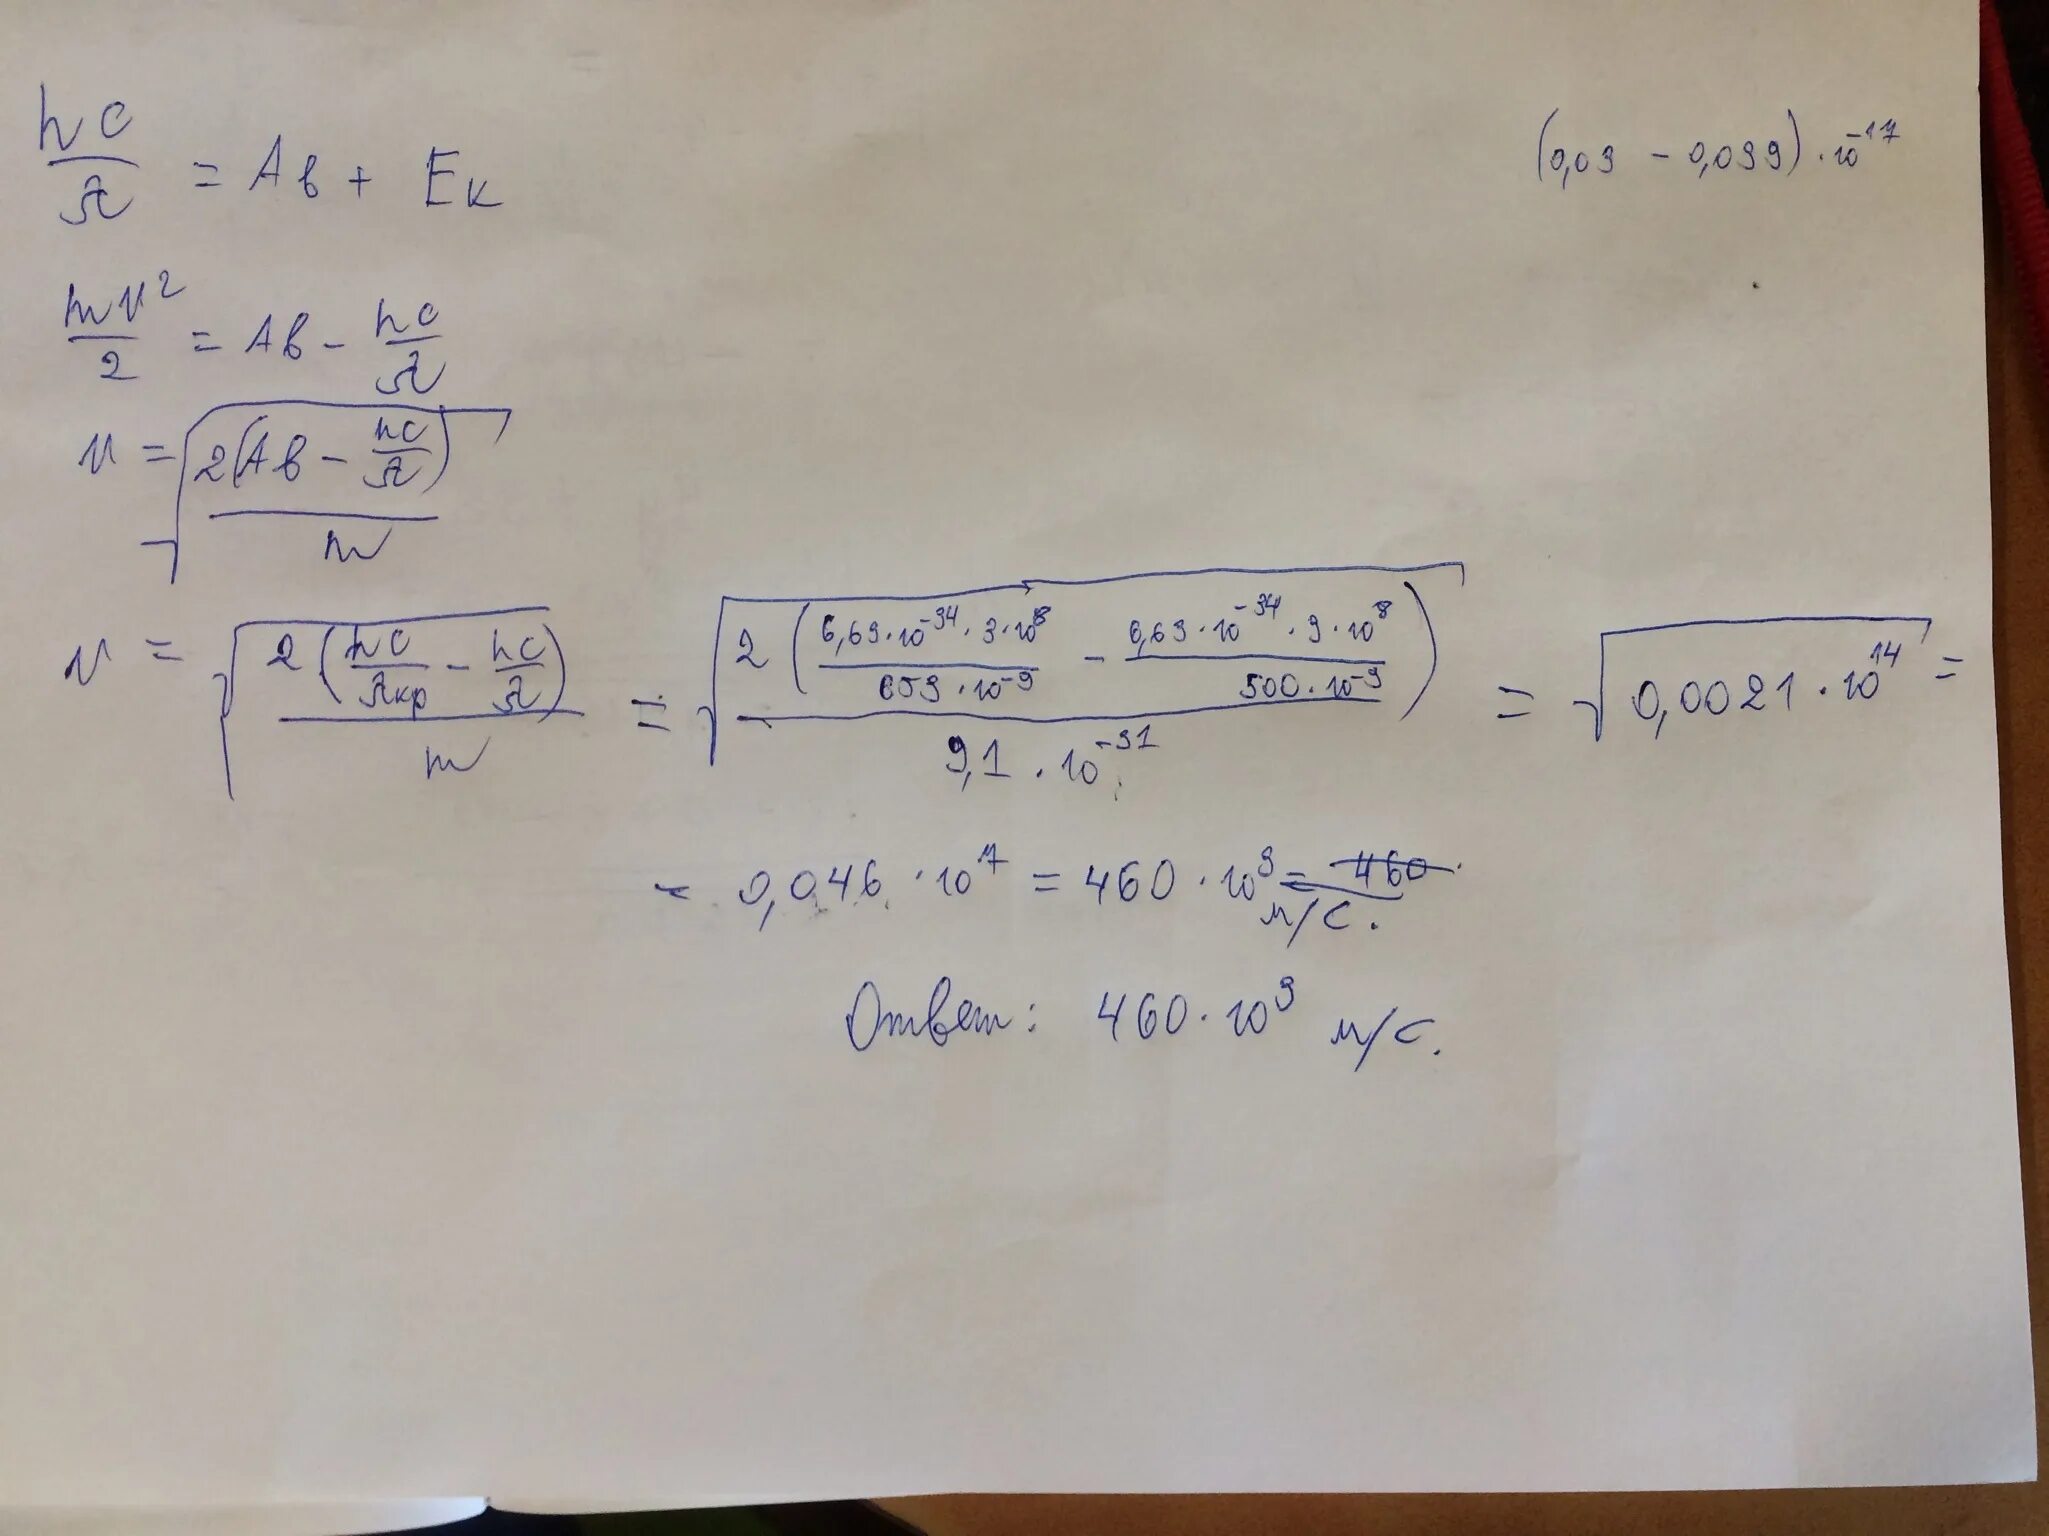 hc/λ = Aв + Eк
(0,03 - 0,039)·10^-17
mv²/2 = Aв - hc/λ
v = √(2(Aв - hc/λ)/m)
v = √(2(hc/λкр - hc/λ)/m) = √(2(6,63·10^-34·3·10^8/659·10^-9 - 6,63·10^-34·3·10^8/500·10^-9)/9,1·10^-31) = √(0,0021·10^14) =
= 0,046·10^7 = 460·10^3 = 460
м/с.
Ответ: 460·10^3 м/с.